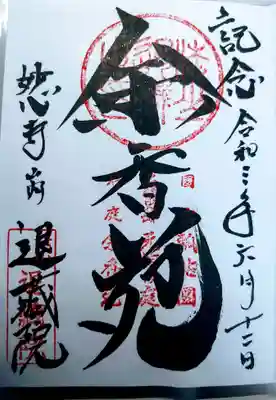 記念 令和三年六月十二日
余香苑
妙心寺内
退蔵院